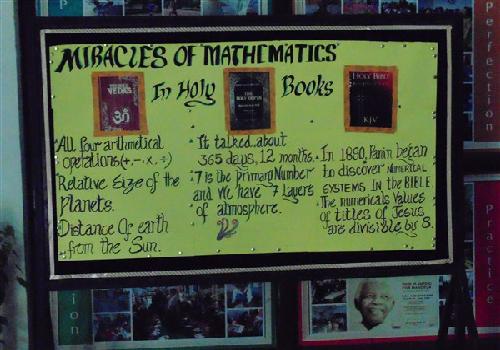 MIRACLES OF MATHEMATICS
In Holy Books
VEDAS
THE HOLY QUR'AN
HOLY BIBLE
KJV
All four arithmetical
operations(+, -, ×, ÷)
Relative Size of the
Planets.
Distance Of earth
from the Sun.
It talked about
365 days, 12 months.
7 is the primary Number
and we have 7 Layers
of atmosphere.
In 1890, Panin began
to discover NUMERICAL
SYSTEMS IN the BIBLE.
The numericals values
of titles of Jesus
are divisible by 8.
Perfection
Practice